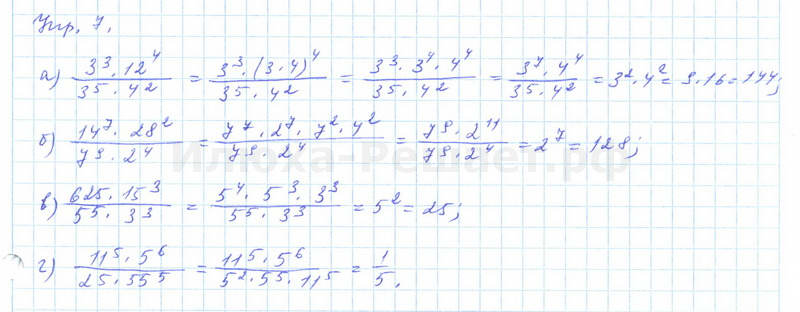 Упр. 7.
а) 3³·12⁴/3⁵·4² = 3³·(3·4)⁴/3⁵·4² = 3³·3⁴·4⁴/3⁵·4² = 3⁷·4⁴/3⁵·4² = 3²·4² = 9·16 = 144;
б) 14⁷·28²/7⁹·2⁴ = 7⁷·2⁷·7²·4²/7⁹·2⁴ = 7⁹·2¹¹/7⁹·2⁴ = 2⁷ = 128;
Илюха-Решает.рф
в) 625·15³/5⁵·3³ = 5⁴·5³·3³/5⁵·3³ = 5² = 25;
г) 11⁵·5⁶/25·55⁵ = 11⁵·5⁶/5²·5⁵·11⁵ = 1/5.